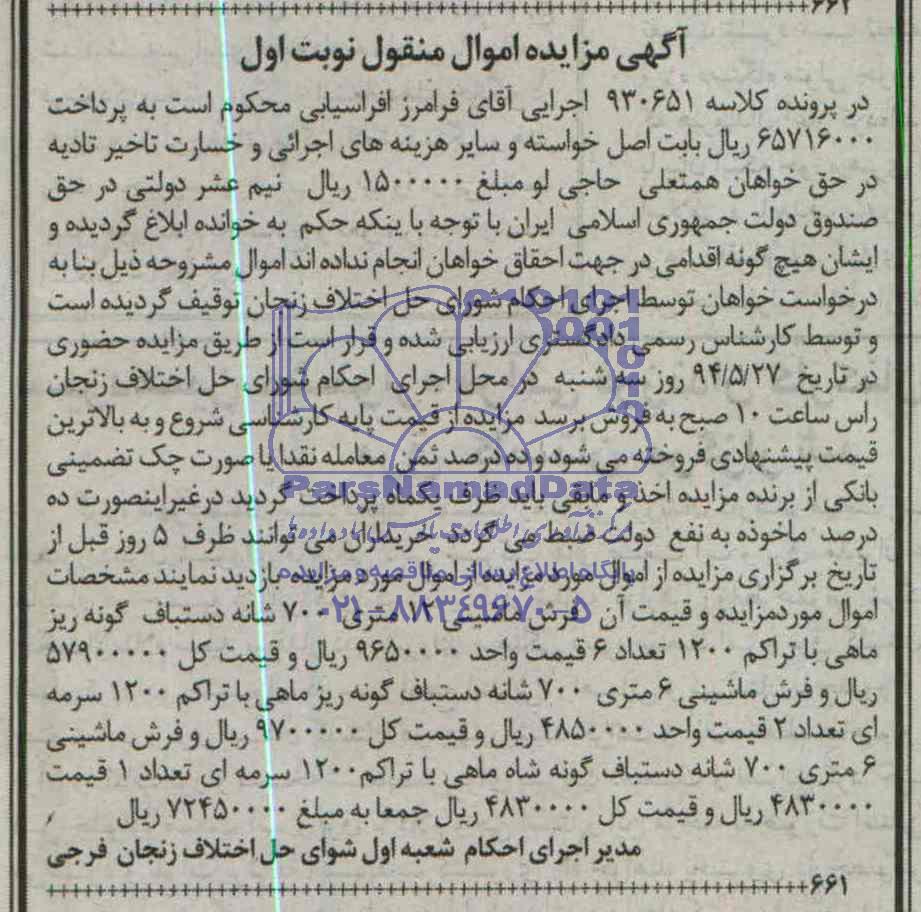 ۶۶۲
آگهی مزایده اموال منقول نوبت اول
در پرونده کلاسه ۹۳۰۶۵۱ اجرایی آقای فرامرز افراسیابی محکوم است به پرداخت
۶۵۷۱۶۰۰۰ ریال بابت اصل خواسته و سایر هزینه های اجرائی و خسارت تاخیر تادیه
در حق خواهان همتعلی حاجی لو مبلغ ۱۵۰۰۰۰۰ ریال نیم عشر دولتی در حق
صندوق دولت جمهوری اسلامی ایران با توجه با ینکه حکم به خوانده ابلاغ گردیده و
ایشان هیچ گونه اقدامی در جهت احقاق خواهان انجام نداده اند اموال مشروحه ذیل بنا به
درخواست خواهان توسط اجرای احکام شورای حل اختلاف زنجان توقیف گردیده است
و توسط کارشناس رسمی دادگستری ارزیابی شده و قرار است از طریق مزایده حضوری
در تاریخ ۹۴/۵/۲۷ روز سه شنبه در محل اجرای احکام شورای حل اختلاف زنجان
راس ساعت ۱۰ صبح به فروش برسد مزایده از قیمت پایه کارشناسی شروع و به بالاترین
قیمت پیشنهادی فروخته می شود و ده درصد ثمن معامله نقدا یا صورت چک تضمینی
بانکی از برنده مزایده اخذ و مابقی باید ظرف یکماه پرداخت گردید درغیراینصورت ده
درصد ماخوذه به نفع دولت ضبط می گردد خریداران می توانند ظرف ۵ روز قبل از
تاریخ برگزاری مزایده از اموال مورد مزایده از اموال مورد مزایده بازدید نمایند مشخصات
اموال موردمزایده و قیمت آن فرش ماشینی ۱۲ متری ۷۰۰ شانه دستباف گونه ریز
ماهی با تراکم ۱۲۰۰ تعداد ۶ قیمت واحد ۹۶۵۰۰۰۰ ریال و قیمت کل ۵۷۹۰۰۰۰۰
ریال و فرش ماشینی ۶ متری ۷۰۰ شانه دستباف گونه ریز ماهی با تراکم ۱۲۰۰ سرمه
ای تعداد ۲ قیمت واحد ۴۸۵۰۰۰۰ ریال و قیمت کل ۹۷۰۰۰۰۰ ریال و فرش ماشینی
۶ متری ۷۰۰ شانه دستباف گونه شاه ماهی با تراکم۱۲۰۰ سرمه ای تعداد ۱ قیمت
۴۸۳۰۰۰۰ ریال و قیمت کل ۴۸۳۰۰۰۰ ریال جمعا به مبلغ ۷۲۴۵۰۰۰۰ ریال
مدیر اجرای احکام شعبه اول شوای حل اختلاف زنجان فرجی
۶۶۱
ParsNamadData
پایگاه اطلاع رسانی مناقصه و مزایده
۰۲۱-۸۸۳۴۹۶۷۰-۵